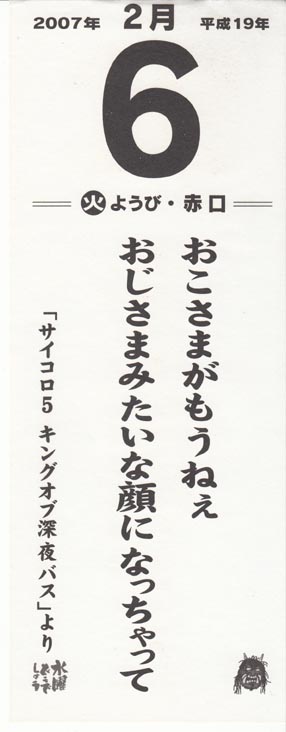 2007年 2月 平成19年
6
火ようび・赤口
おこさまがもうねぇ
おじさまみたいな顔になっちゃって
「サイコロ5 キングオブ深夜バス」より
水曜
どうで
しょう